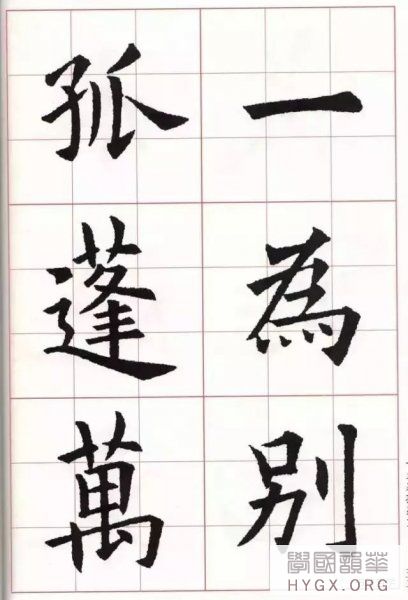 一為別
孤蓬萬
華韻國學
HYGX.ORG